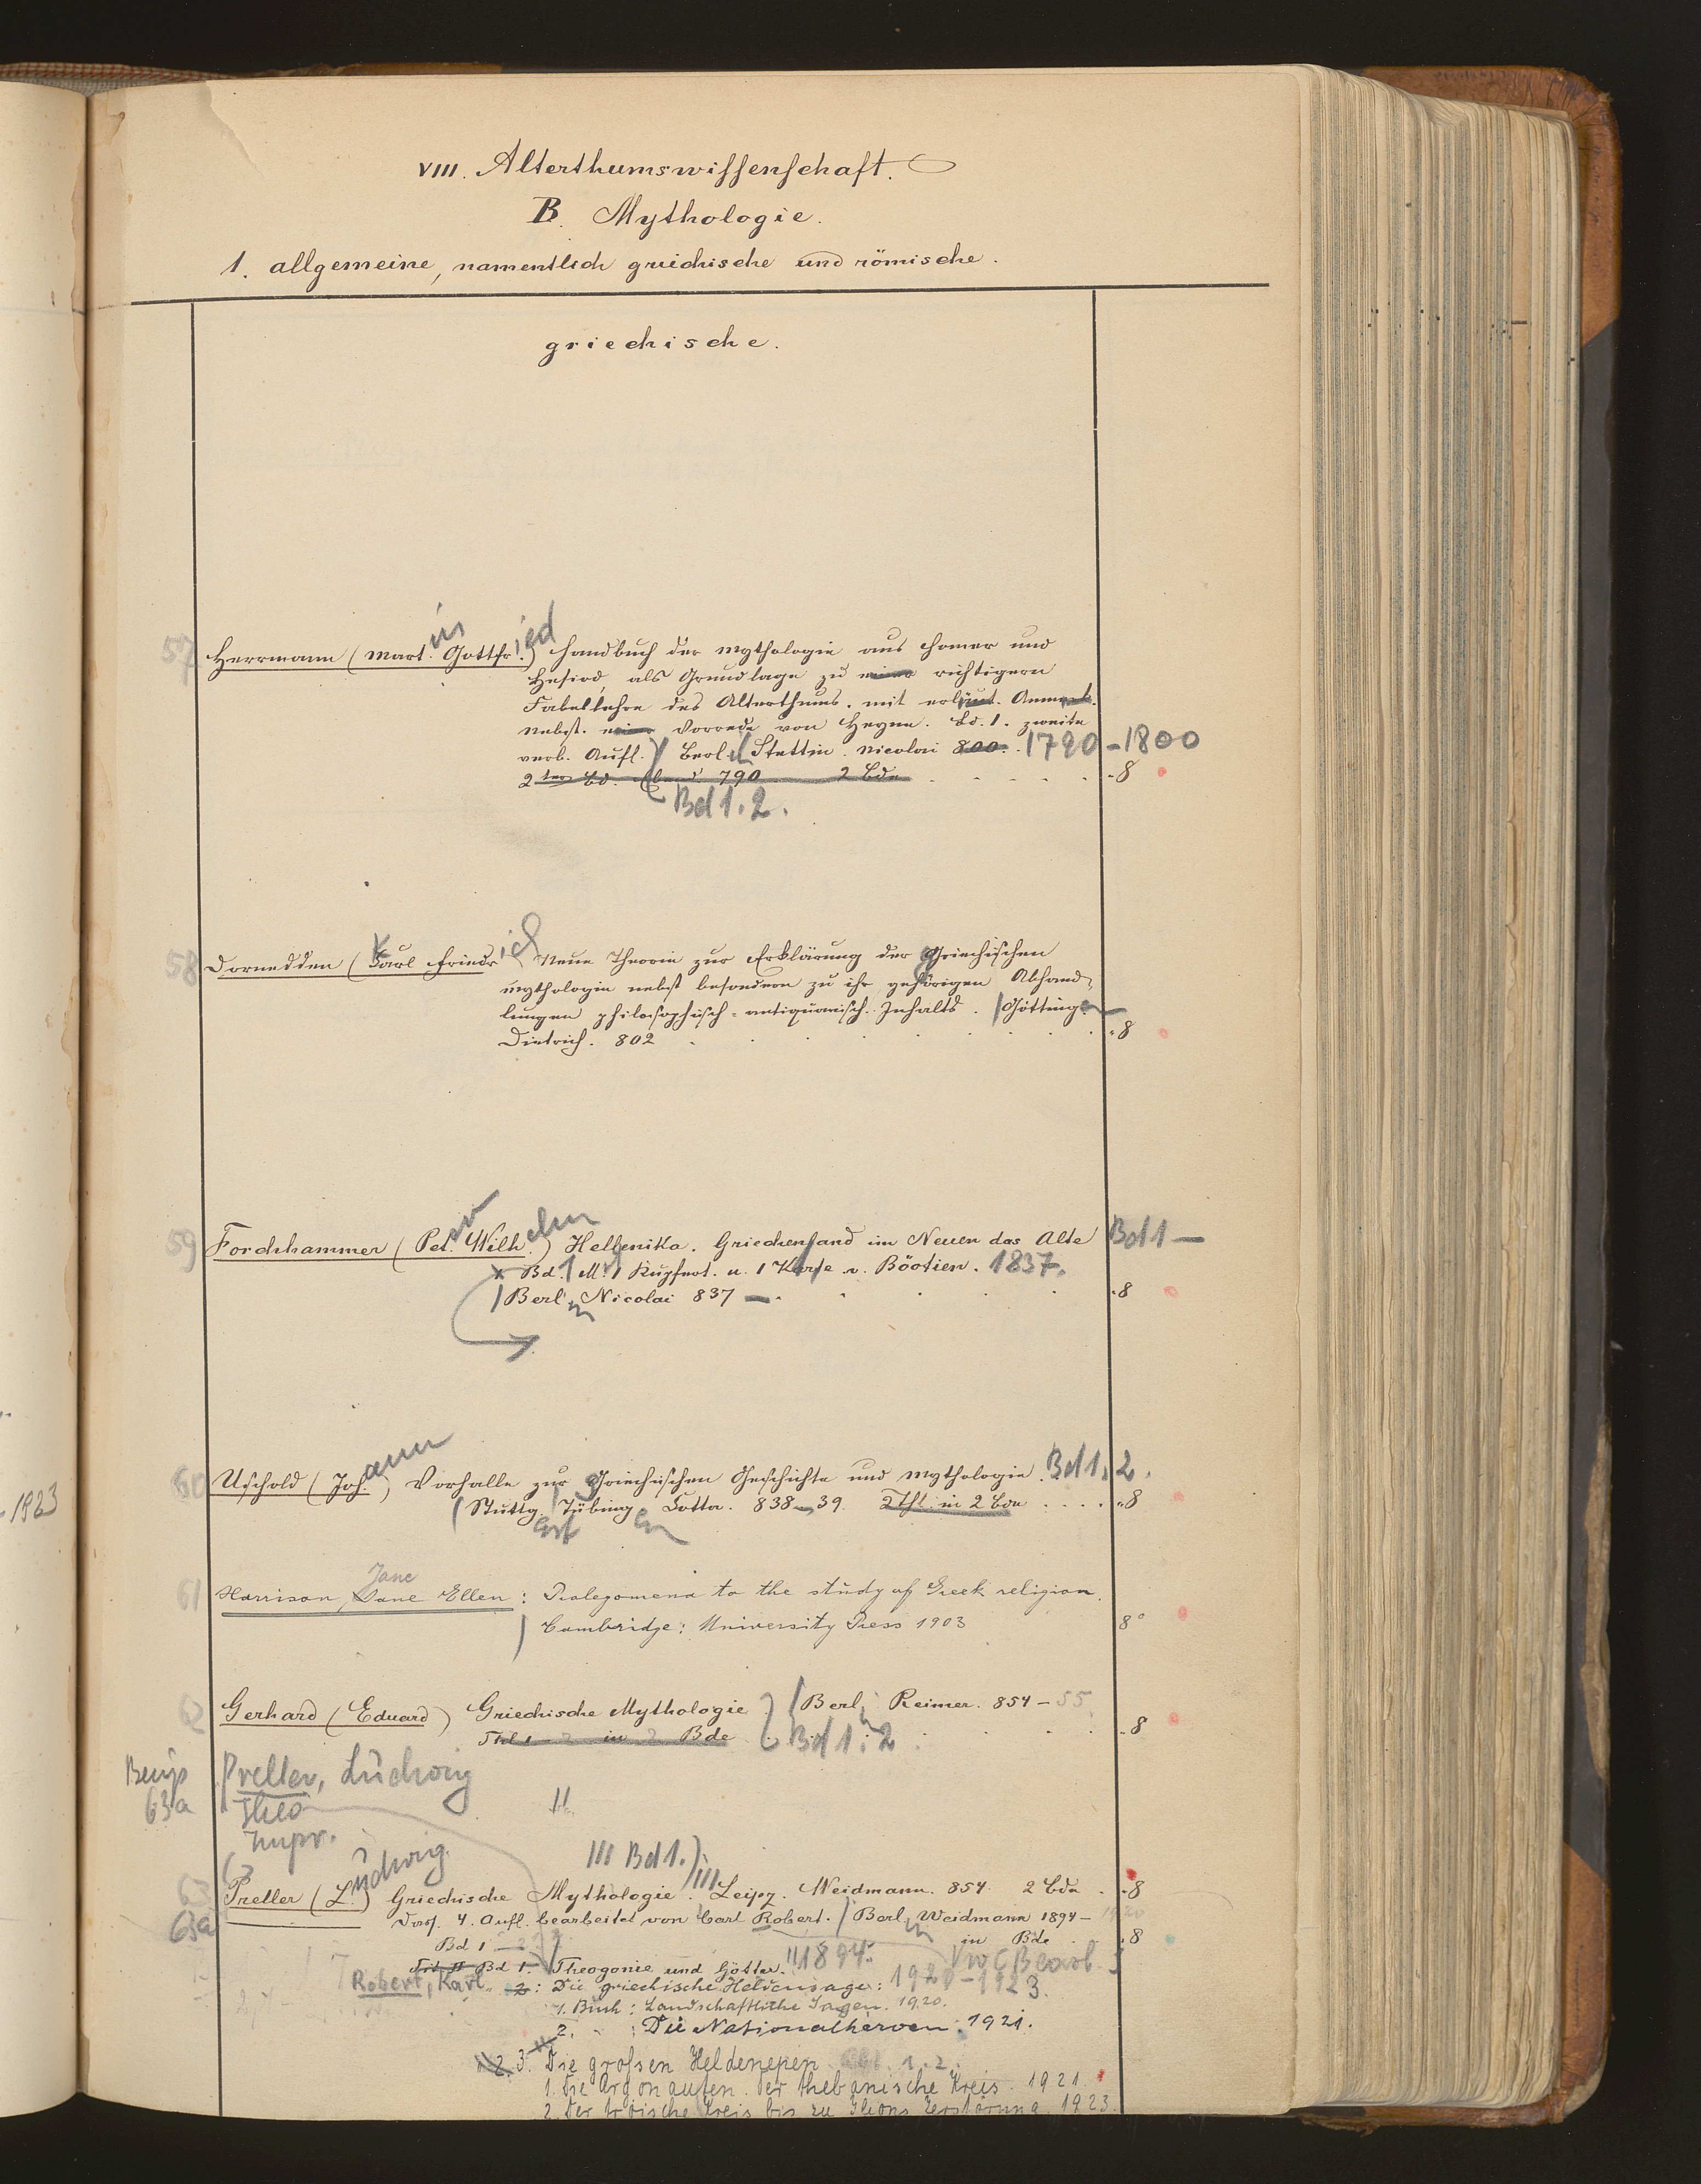 VIII. Alterthumswissenschaft.
B. Mythologie.
1. allgemeine, namentlich griechische und römische.
griechische.
57 Herrmann (Martin Gottfried) Handbuch der Mythologie aus Homer und
Hesiod, als Grundlage zu einer richtigern
Fabellehre des Alterthums. mit erläut. Anmerk.
nebst einer Vorrede von Heyne. Bd. 1. zweite
verb. Aufl. Berl. u. Stettin. Nicolai 800. 1790-1800
2ter Bd. Ebend. 790 2 Bde . . . . . 8
Bd 1. 2.
58 Dornedden (Karl Friedrich) Neue Theorie zur Erklärung der Griechischen
Mythologie nebst besondern zu ihr gehörigen Abhand-
lungen philosophisch-antiquarisch. Inhalts. Göttingen
Dietrich. 802 . . . . . 8
59 Forchhammer (Peter Wilhelm) Hellenika. Griechenland im Neuen das Alte Bd 1 —
Bd. 1 M. 1 Kupfert. u. 1 Karte v. Böotien. 1837.
Berlin Nicolai 837 — . . . . 8
60 Uschold (Johann) Vorhalle zur Griechischen Geschichte und Mythologie. Bd 1. 2.
Stuttg. Tübingen Cotta. 838-39. 2 Thl. in 2 Bde . . . . 8
61 Harrison, Jane Ellen: Prolegomena to the study of Greek religion.
Jane
Cambridge: University Press 1903 8°
62 Gerhard (Eduard) Griechische Mythologie Berlin Reimer. 854-55
Thl 1 - 2 in 2 Bde Bd 1. 2 . . . 8
63a Preller, Ludwig
Theo
II
III Bd 1.
63 Preller (Ludwig) Griechische Mythologie. III Leipz. Weidmann. 854. 2 Bde . 8
63a Dass. 4. Aufl. bearbeitet von Carl Robert. Berlin Weidmann 1894- 1920
Bd 1 — in Bde 8
Bd 1. Theogonie und Götter. 1894.
Robert, Karl 2: Die griechische Heldensage: 1920-1923.
1. Buch: Landschaftliche Sagen. 1920.
2. " : Die Nationalheroen. 1921.
3. Die grossen Heldenepen 1. 2.
1. Die Argonauten. Der thebanische Kreis. 1921.
2. Der troische Kreis bis zu Ilions Zerstörung. 1923.
1923